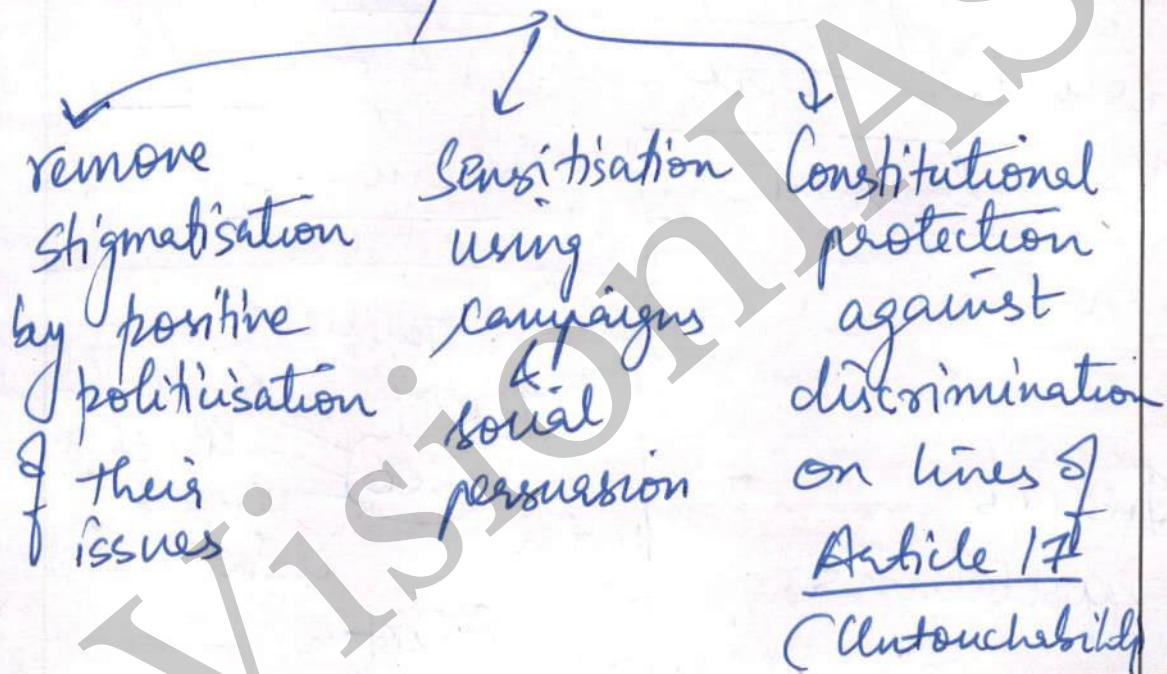 remove
stigmatisation
by positive
politicisation
of their
issues
Sensitisation
using
campaigns
&
social
persuasion
Constitutional
protection
against
discrimination
on lines of
Article 17
(Untouchability
VisionIAS